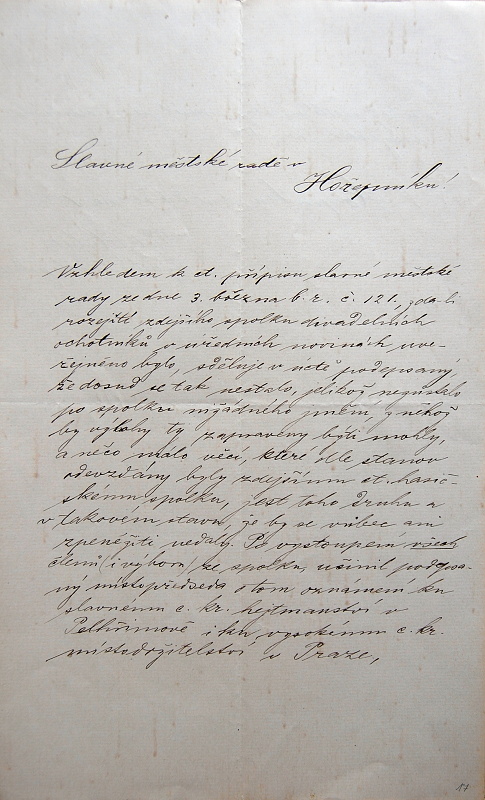 Slavné městské radě v
Hořepníku!
Vzhledem k ct. přípisu slavné městské
rady ze dne 3. března b. r. č. 121, zda-li
rozejití zdejšího spolku divadelních
ochotníků v úředních novinách uve-
řejněno bylo, sděluje v úctě podepsaný,
že dosud se tak nestalo, jelikož nezůstalo
po spolku nižádného jmění, z něhož
by výlohy ty zapraveny býti mohly,
a něco málo věcí, které dle stanov
odevzdány byly zdejšímu ct. hasič-
skému spolku, jest toho druhu a
v takovém stavu, že by se vůbec ani
zpeněžiti nedaly. Po vystoupení všech
členů (i výboru) ze spolku, učinil podepsa-
ný místopředseda o tom oznámení ku
slavnému c. kr. hejtmanství v
Pelhřimově i ku vysokému c. kr.
místodržitelství v Praze,
17